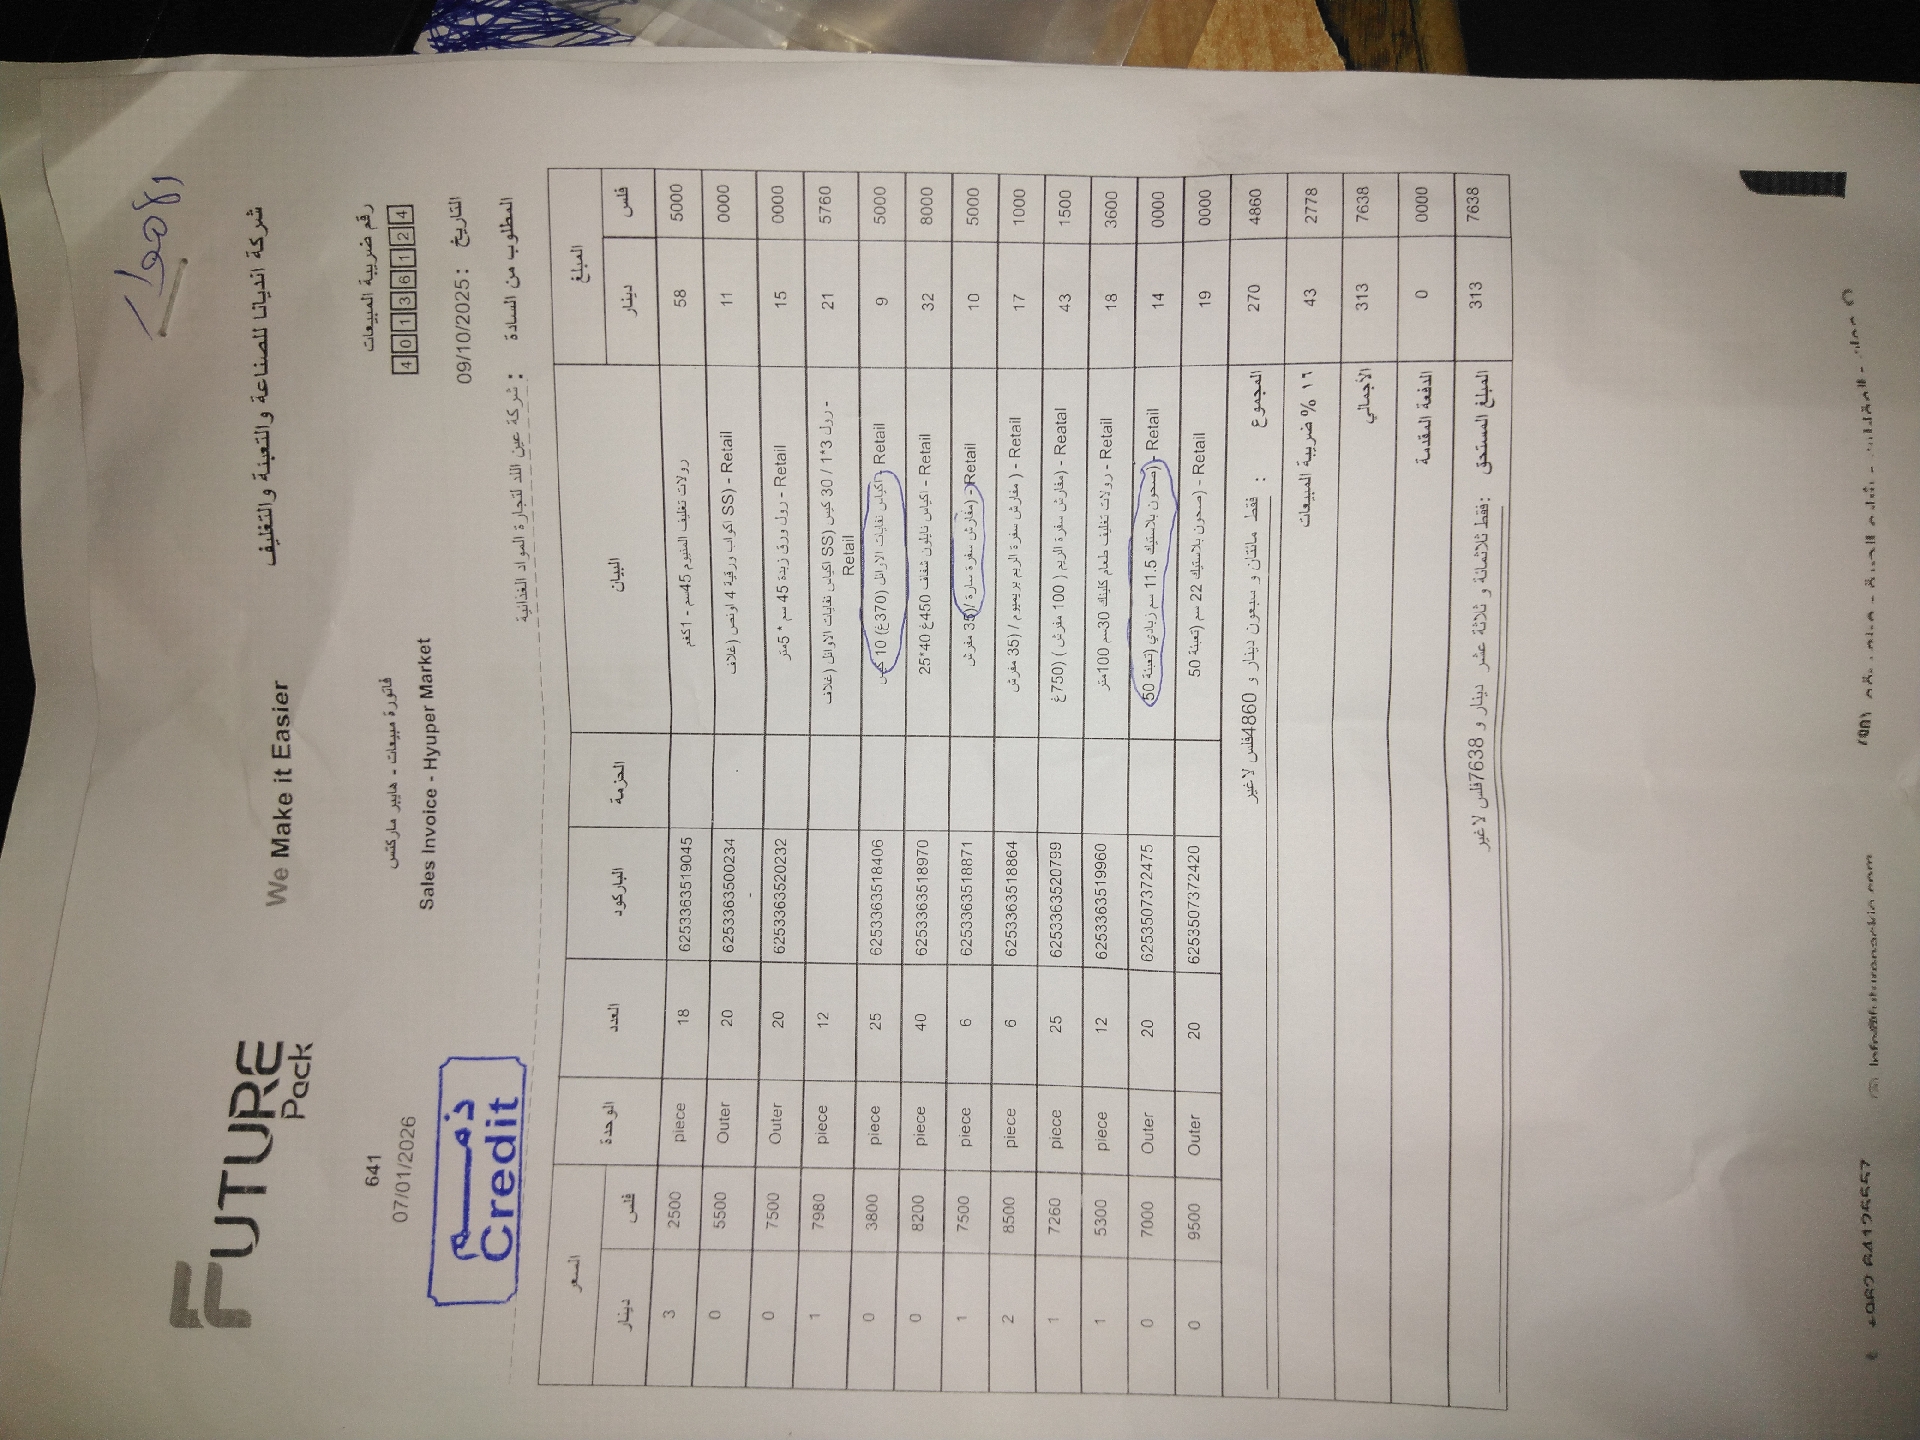 الاهوار
FUTURE Pack
We Make it Easier
شركة انديانا للصناعة والتعبئة والتغليف
641
07/01/2026
فاتورة مبيعات - هايبر ماركتس
Sales Invoice - Hyuper Market
رقم ضريبة المبيعات
40136124
التاريخ : 09/10/2025
ذمم
Credit
المطلوب من السادة : شركة عين اللد لتجارة المواد الغذائية
السعر الوحدة العدد الباركود الحزمة البيان المبلغ
دينار فلس دينار فلس
3 2500 piece 18 6253363519045 رولات تغليف المنيوم 45سم - 1كغم 58 5000
0 5500 Outer 20 6253363500234 اكواب ورقية 4 اونص (غلاف SS) - Retail 11 0000
0 7500 Outer 20 6253363520232 رول ورق زبدة 45 سم * 5متر - Retail 15 0000
1 7980 piece 12 اكياس نفايات الاوائل (غلاف SS) رول 3*1 / 30 كيس - Retail 21 5760
0 3800 piece 25 6253363518406 اكياس نفايات الاوائل (370غ) 10 كيس - Retail 9 5000
0 8200 piece 40 6253363518970 اكياس نايلون شفاف 450غ 40*25 - Retail 32 8000
1 7500 piece 6 6253363518871 (مفارش سفرة سارة /(35 مفرش - Retail 10 5000
2 8500 piece 6 6253363518864 ( مفارش سفرة الريم بريميوم / (35 مفرش - Retail 17 1000
1 7260 piece 25 6253363520799 (مفارش سفرة الريم ( 100 مفرش ) (750غ - Reatal 43 1500
1 5300 piece 12 6253363519960 رولات تغليف طعام كلينك 30سم 100متر - Retail 18 3600
0 7000 Outer 20 6253507372475 (صحون بلاستيك 11.5 سم زبادي (تعبئة 50 - Retail 14 0000
0 9500 Outer 20 6253507372420 (صحون بلاستيك 22 سم (تعبئة 50 - Retail 19 0000
المجموع : فقط مائتان و سبعون دينار و 4860فلس لا غير 270 4860
١٦ % ضريبة المبيعات 43 2778
الأجمالي 313 7638
الدفعة المقدمة 0 0000
المبلغ المستحق :فقط ثلاثمائة و ثلاثة عشر دينار و 7638فلس لا غير 313 7638